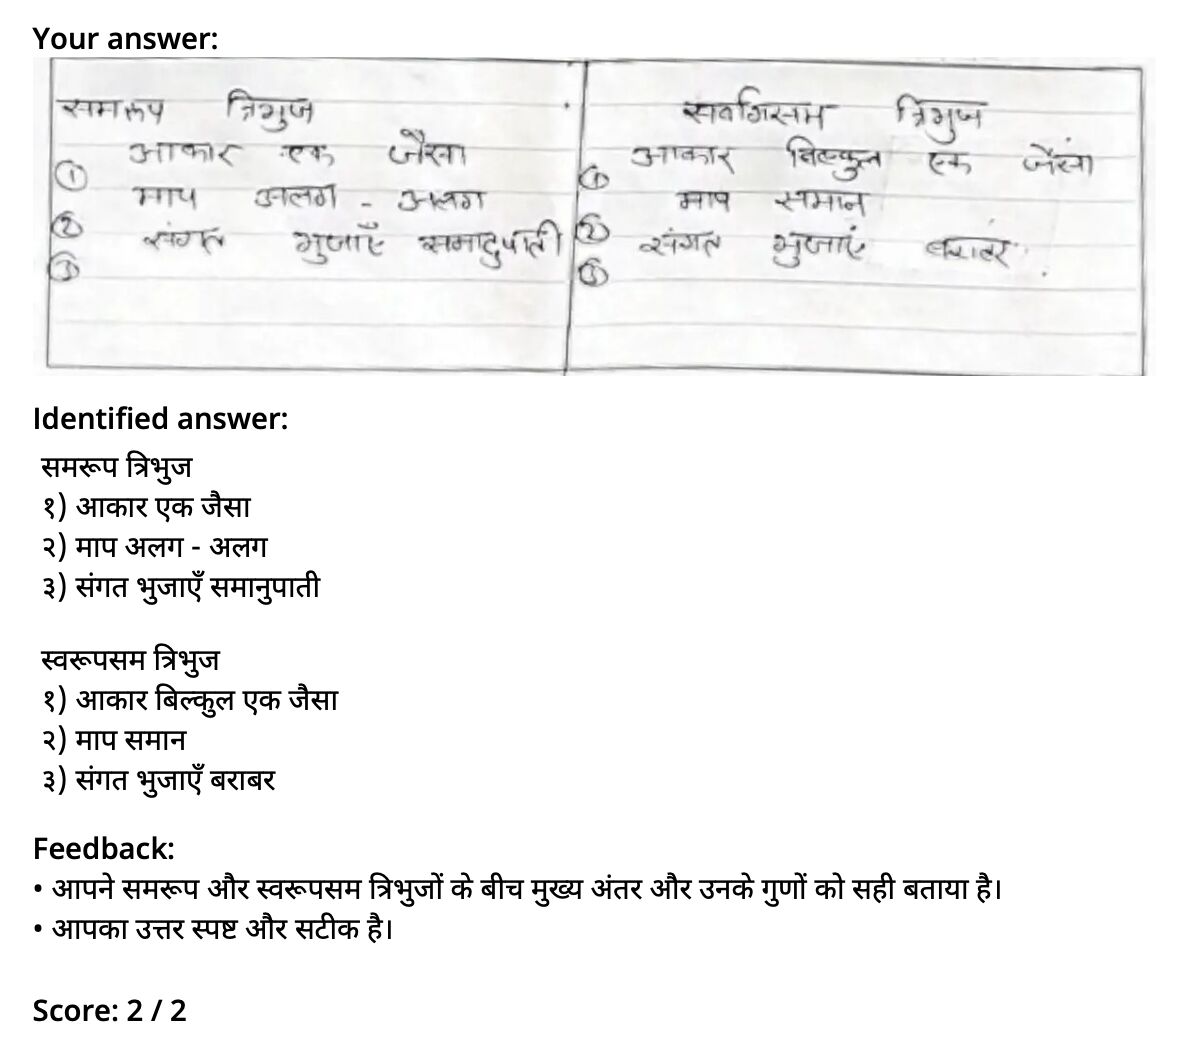 Your answer:
समरूप त्रिभुज
① आकार एक जैसा
② माप अलग - अलग
③ संगत भुजाएँ समानुपाती
त्रिभुज
① आकार बिल्कुल एक जैसा
② माप समान
③ संगत भुजाएं बराबर
Identified answer:
समरूप त्रिभुज
१) आकार एक जैसा
२) माप अलग - अलग
३) संगत भुजाएँ समानुपाती
स्वरूपसम त्रिभुज
१) आकार बिल्कुल एक जैसा
२) माप समान
३) संगत भुजाएँ बराबर
Feedback:
• आपने समरूप और स्वरूपसम त्रिभुजों के बीच मुख्य अंतर और उनके गुणों को सही बताया है।
• आपका उत्तर स्पष्ट और सटीक है।
Score: 2 / 2